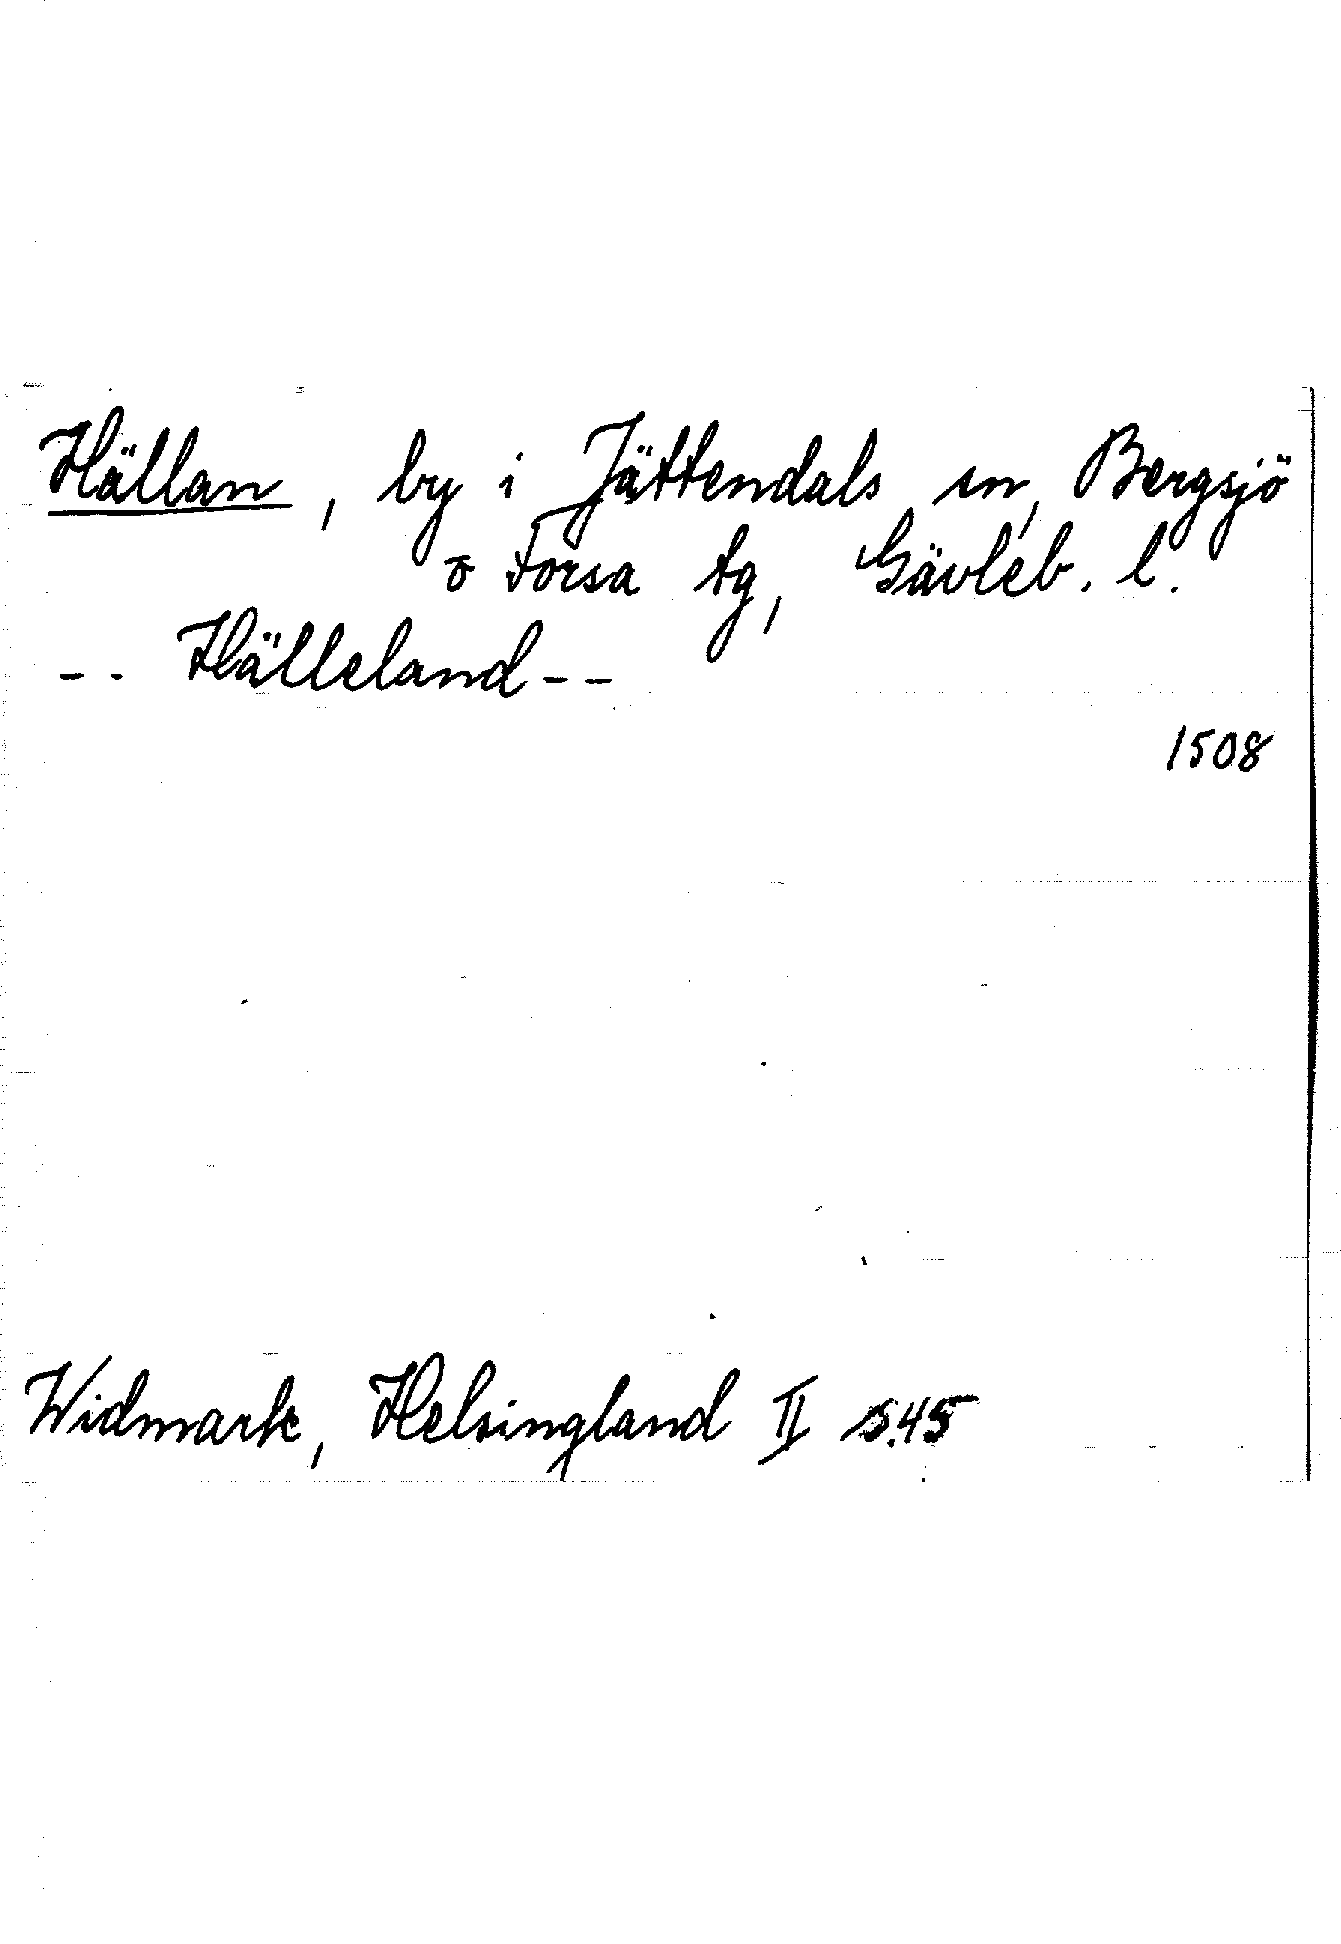 Hällan, by i Jättendals sn, Bergsjö
o Forsa tg, Gävleb. l.
-- Hälleland--
1508
Widmark, Helsingland II s.45